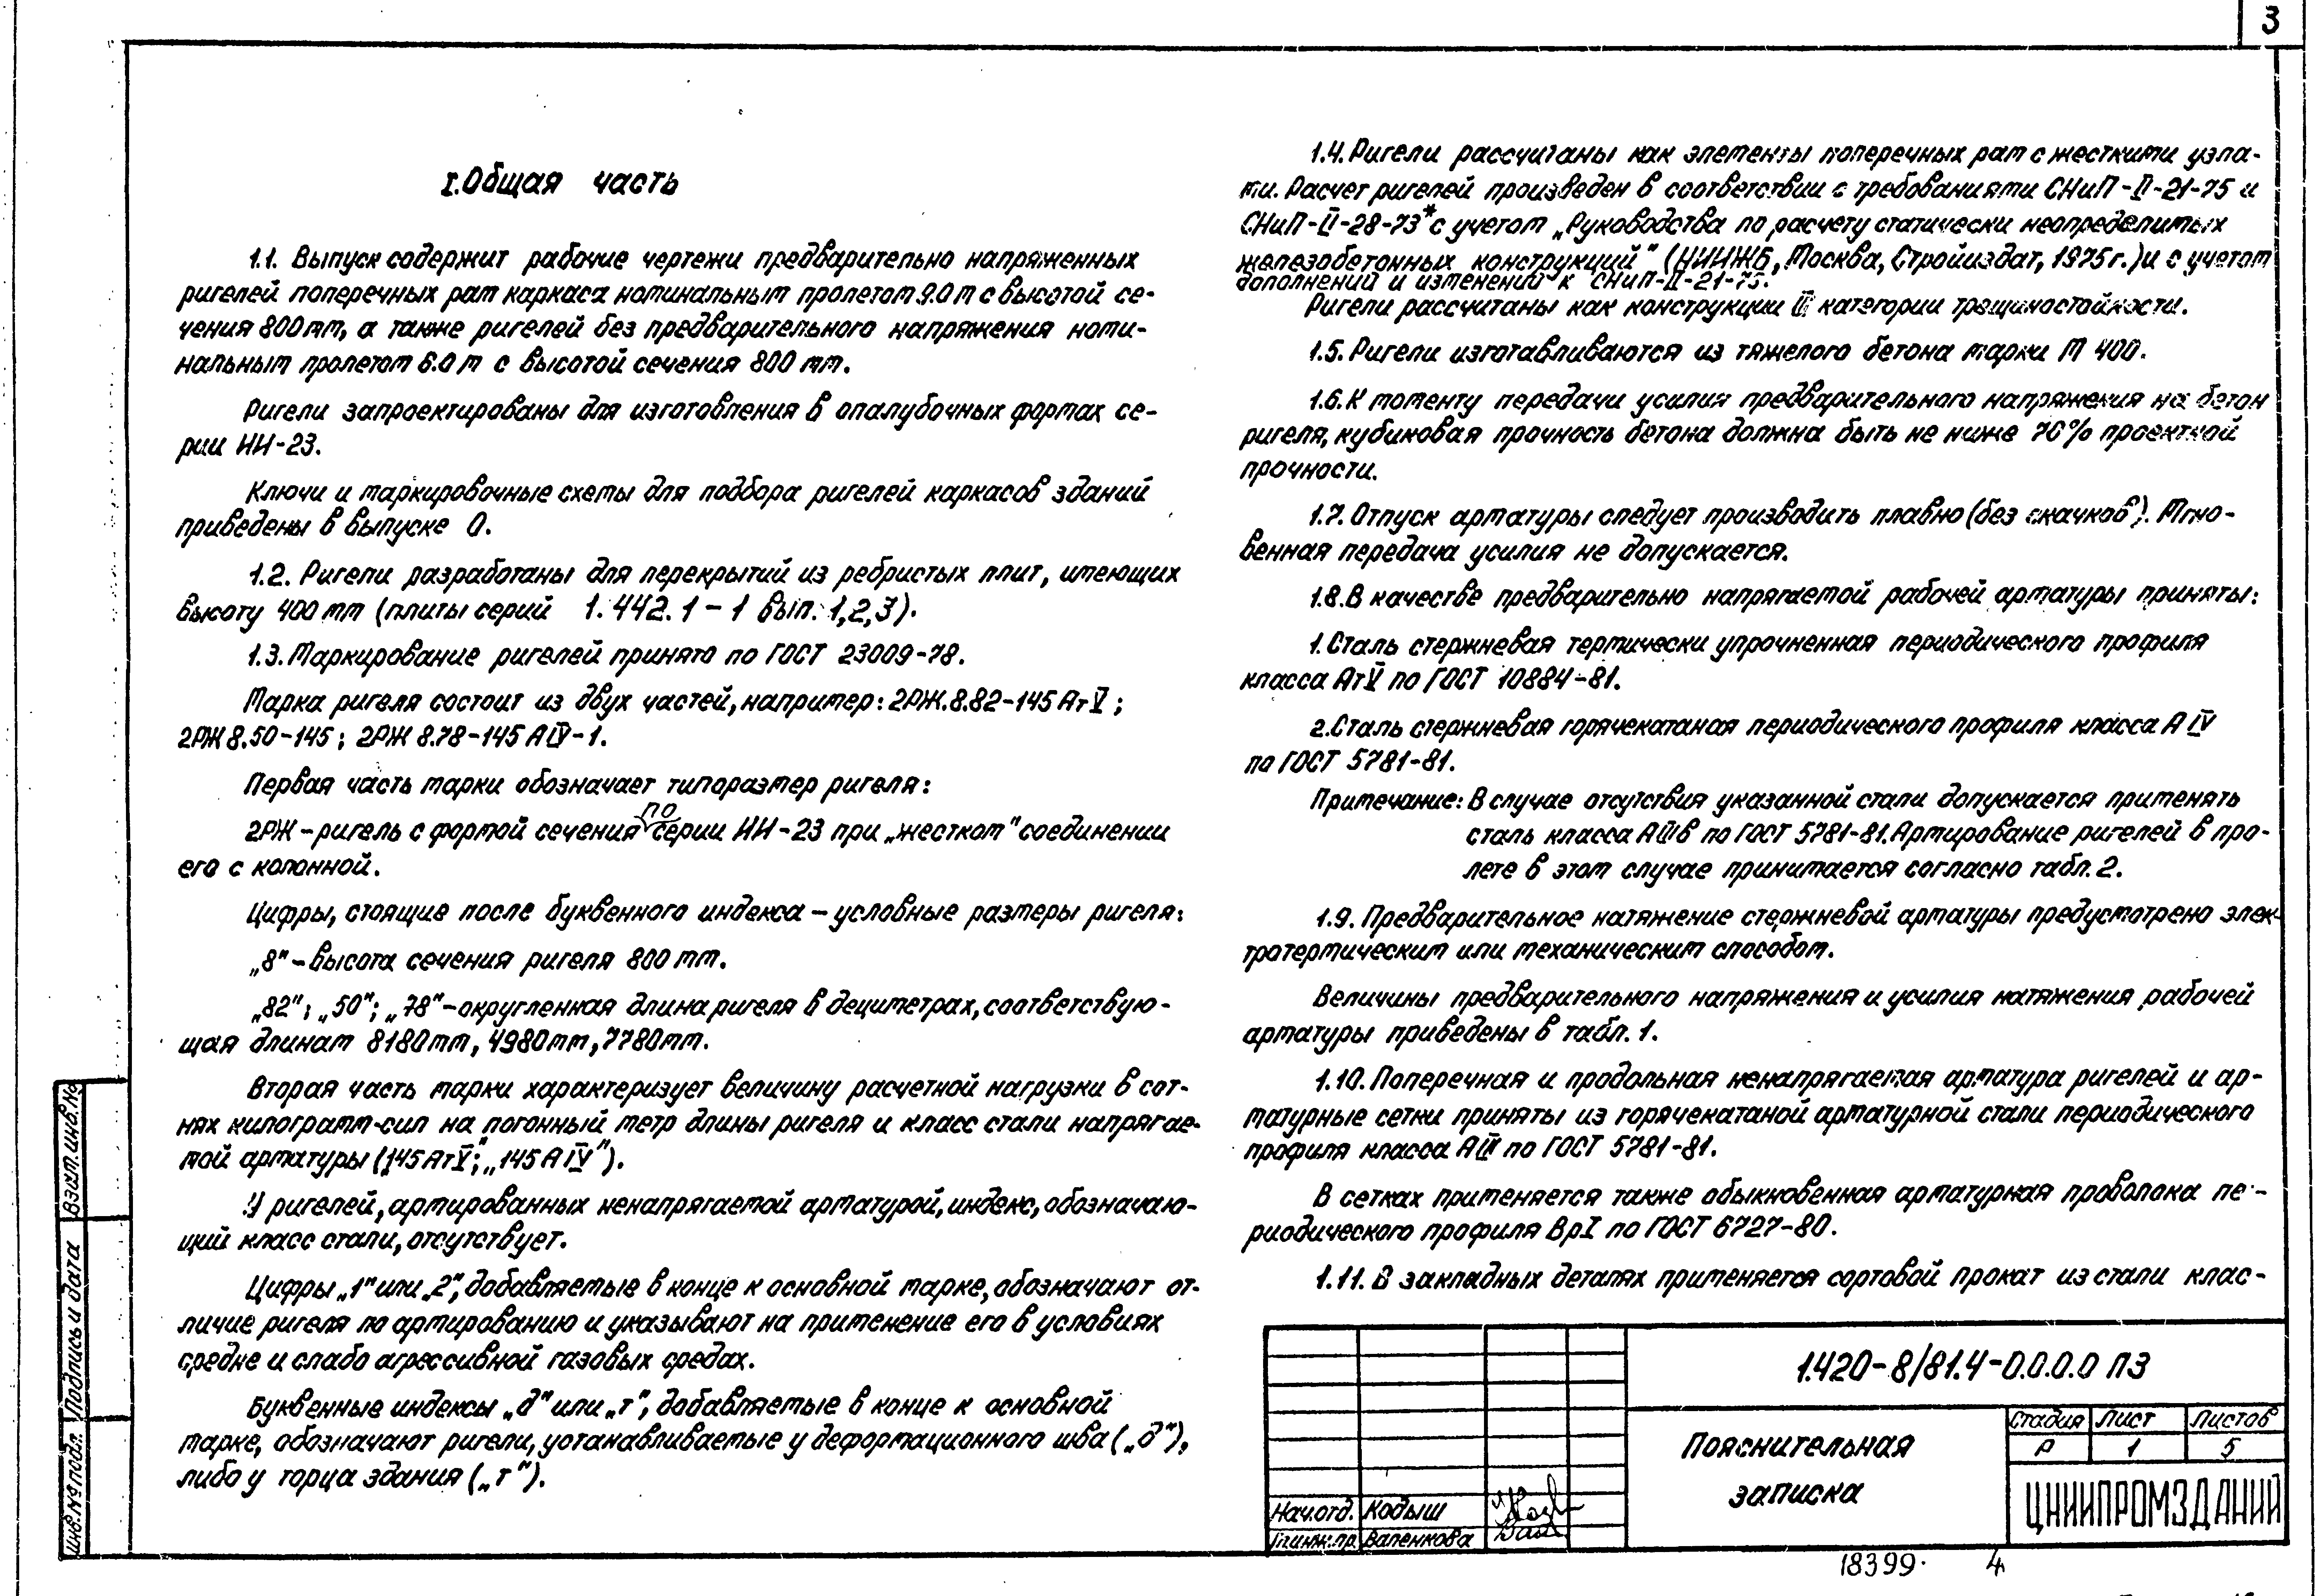 3
I. Общая часть
1.1. Выпуск содержит рабочие чертежи предварительно напряженных
ригелей поперечных рам каркаса номинальным пролетом 9.0 м с высотой се-
чения 800 мм, а также ригелей без предварительного напряжения номи-
нальным пролетом 6.0 м с высотой сечения 800 мм.
Ригели запроектированы для изготовления в опалубочных формах се-
рии ИИ-23.
Ключи и маркировочные схемы для подбора ригелей каркасов зданий
приведены в выпуске 0.
1.2. Ригели разработаны для перекрытий из ребристых плит, имеющих
высоту 400 мм (плиты серий 1.442.1-1 вып. 1,2,3).
1.3. Маркирование ригелей принято по ГОСТ 23009-78.
Марка ригеля состоит из двух частей, например: 2РЖ.8.82-145АтV;
2РЖ 8.50-145; 2РЖ 8.78-145 АIV-1.
Первая часть марки обозначает типоразмер ригеля:
2РЖ - ригель с формой сечения по серии ИИ-23 при „жестком" соединении
его с колонной.
Цифры, стоящие после буквенного индекса - условные размеры ригеля:
„8" - высота сечения ригеля 800 мм.
„82"; „50"; „78" - округленная длина ригеля в дециметрах, соответствую-
щая длинам 8180мм, 4980мм, 7780мм.
Вторая часть марки характеризует величину расчетной нагрузки в сот-
нях килограмм-сил на погонный метр длины ригеля и класс стали напрягае-
мой арматуры („145АтV"; „145АIV").
У ригелей, армированных ненапрягаемой арматурой, индекс, обозначаю-
щий класс стали, отсутствует.
Цифры „1" или „2", добавляемые в конце к основной марке, обозначают от-
личие ригеля по армированию и указывают на применение его в условиях
средне и слабо агрессивной газовых средах.
Буквенные индексы „д" или „т", добавляемые в конце к основной
марке, обозначают ригели, устанавливаемые у деформационного шва („д"),
либо у торца здания („т").
1.4. Ригели рассчитаны как элементы поперечных рам с жесткими узла-
ми. Расчет ригелей произведен в соответствии с требованиями СНиП-II-21-75 и
СНиП-II-28-73* с учетом „Руководства по расчету статически неопределимых
железобетонных конструкций" (НИИЖБ, Москва, Стройиздат, 1975г.) и с учетом
дополнений и изменений к СНиП-II-21-75.
Ригели рассчитаны как конструкции III категории трещиностойкости.
1.5. Ригели изготавливаются из тяжелого бетона марки М 400.
1.6. К моменту передачи усилия предварительного напряжения на бетон
ригеля, кубиковая прочность бетона должна быть не ниже 70% проектной
прочности.
1.7. Отпуск арматуры следует производить плавно (без скачков). Мгно-
венная передача усилия не допускается.
1.8. В качестве предварительно напрягаемой рабочей арматуры приняты:
1. Сталь стержневая термически упрочненная периодического профиля
класса АтV по ГОСТ 10884-81.
2. Сталь стержневая горячекатаная периодического профиля класса А IV
по ГОСТ 5781-81.
Примечание: В случае отсутствия указанной стали допускается применять
сталь класса АIIIв по ГОСТ 5781-81. Армирование ригелей в про-
лете в этом случае принимается согласно табл. 2.
1.9. Предварительное натяжение стержневой арматуры предусмотрено элек-
тротермическим или механическим способом.
Величины предварительного напряжения и усилия натяжения рабочей
арматуры приведены в табл. 1.
1.10. Поперечная и продольная ненапрягаемая арматура ригелей и ар-
матурные сетки приняты из горячекатаной арматурной стали периодического
профиля класса АIII по ГОСТ 5781-81.
В сетках применяется также обыкновенная арматурная проволока пе-
риодического профиля ВрI по ГОСТ 6727-80.
1.11. В закладных деталях применяется сортовой прокат из стали клас-
Взам.инв.№
Подпись и дата
Инв.№ подл.
1.420-8/81.4-0.0.0.0 ПЗ
Пояснительная
записка
Стадия Лист Листов
Р 1 5
ЦНИИПРОМЗДАНИЙ
Нач.отд. Кодыш
Гл.инж.пр. Валенкова
18399 4